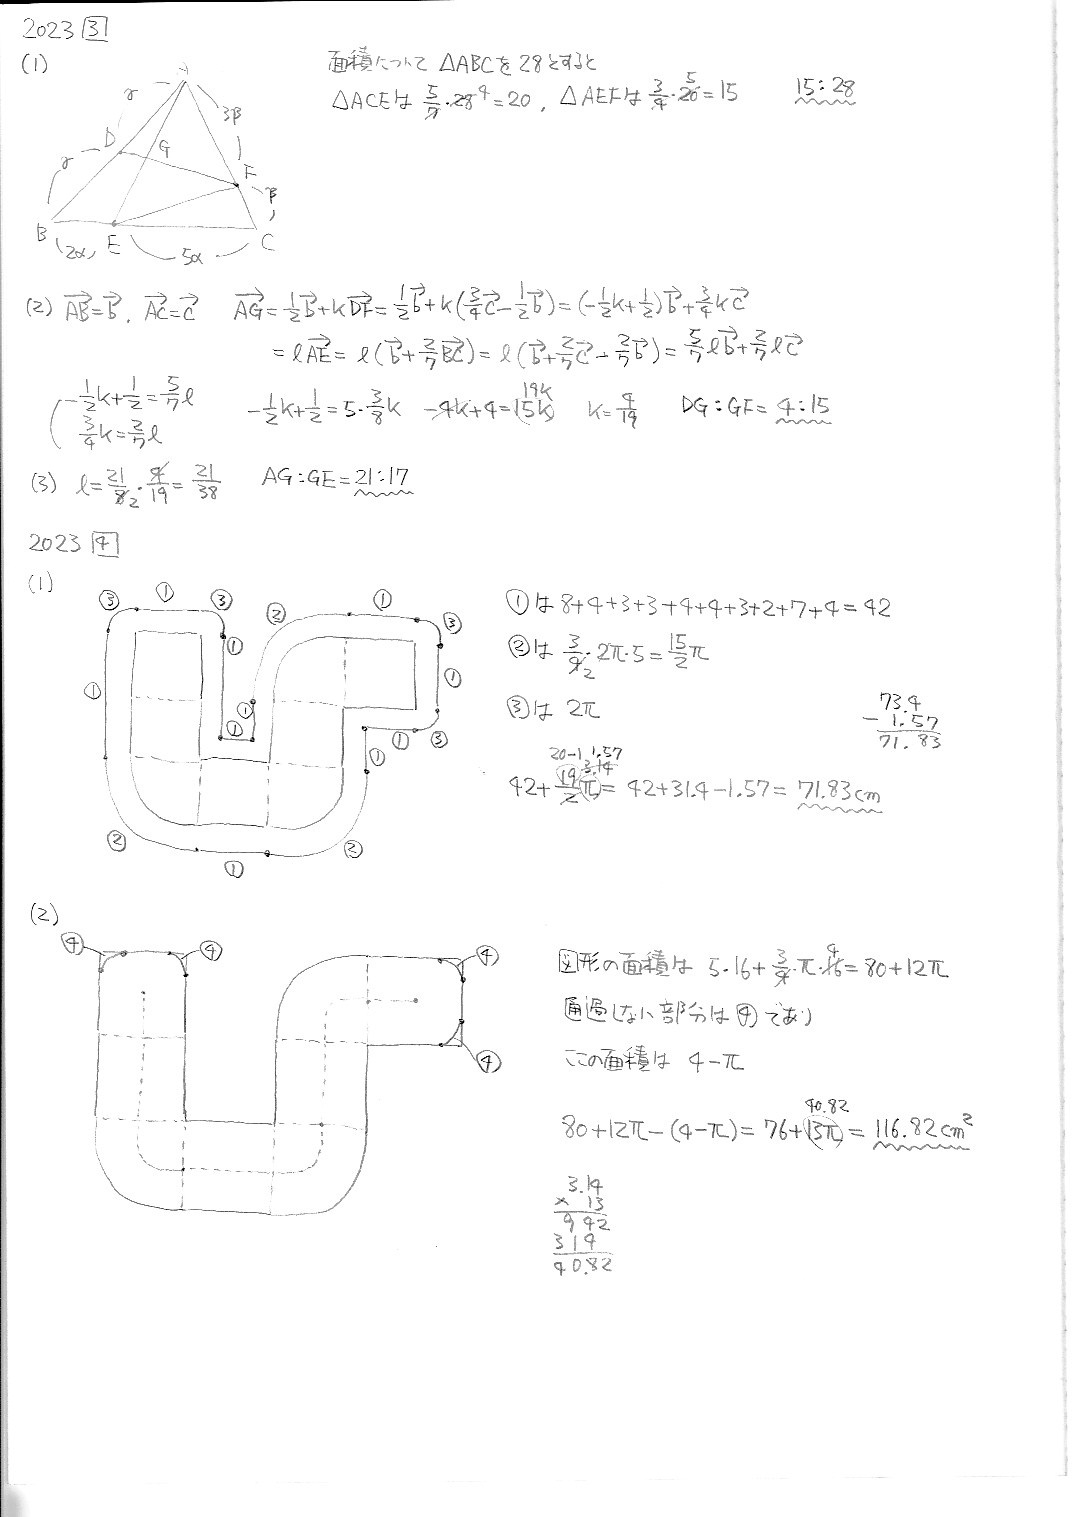 2023 3
(1)
面積について △ABCを28とすると
△ACEは 5/7・28 4 = 20, △AEFは 3/4・20 5 = 15 15:28
A
γ
3β
D
G
F
γ
β
B
2α
E
5α
C
(2) AB→=b→, AC→=c→ AG→=1/2b→+kDF→=1/2b→+k(3/4c→-1/2b→)=(-1/2k+1/2)b→+3/4kc→
=ℓAE→=ℓ(b→+2/7BC→)=ℓ(b→+2/7c→-2/7b→)=5/7ℓb→+2/7ℓc→
-1/2k+1/2=5/7ℓ -1/2k+1/2=5・3/8k -4k+4=15k 19k k=4/19 DG:GF=4:15
3/4k=2/7ℓ
(3) ℓ=21/8 2・4/19=21/38 AG:GE=21:17
2023 4
(1)
③ ① ③ ② ① ③
① ① ① ① ① ① ③
① ②
② ①
①は 8+4+3+3+4+4+3+2+7+4=42
②は 3/4 2・2π・5=15/2π
③は 2π
73.4
- 1.57
71.83
20-1 1.57
3.14
42+19/2π=42+31.4-1.57=71.83cm
(2)
④ ④ ④
④
図形の面積は 5・16+3/4・π・16 4=80+12π
通過しない部分は④であり
ここの面積は 4-π
40.82
80+12π-(4-π)=76+13π=116.82cm²
3.14
× 13
942
314
40.82